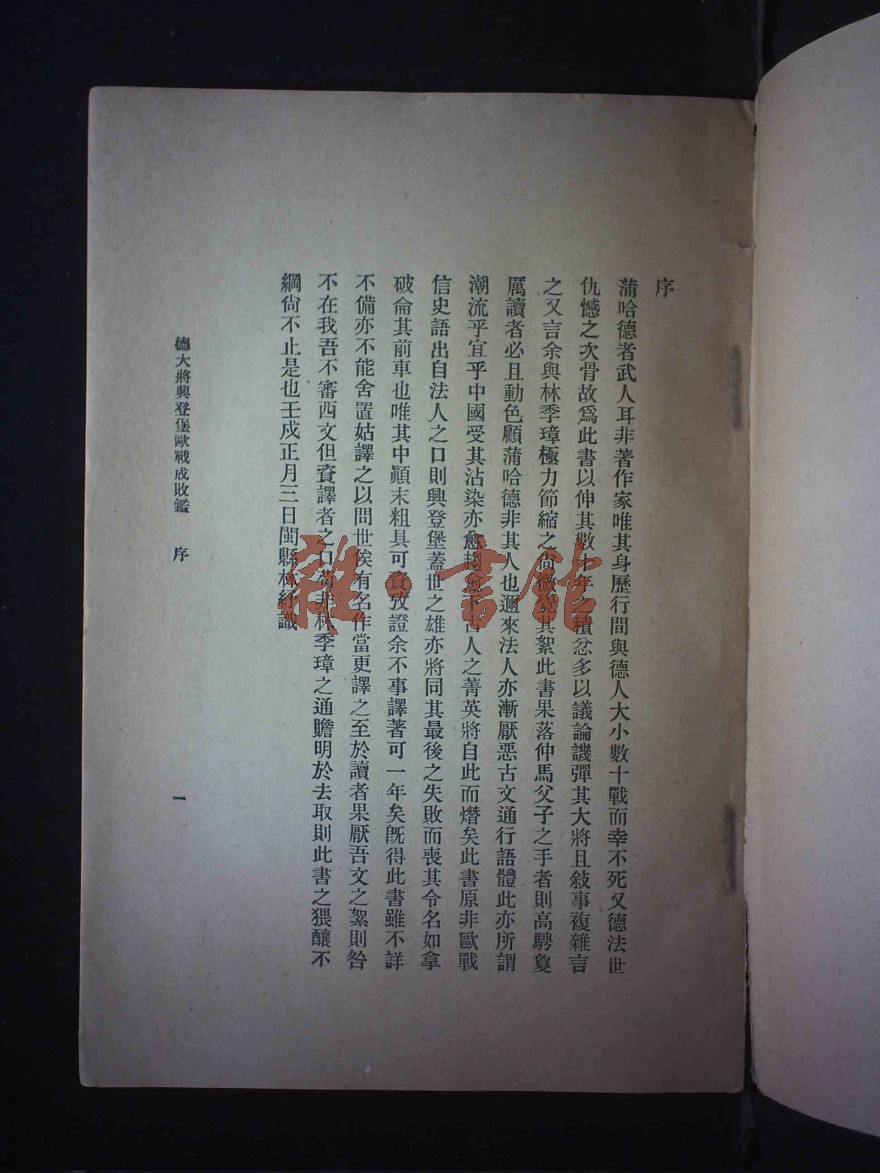 序
蒲哈德者武人耳非著作家唯其身歷行間與德人大小數十戰而幸不死又德法世
仇憾之次骨故爲此書以伸其數十年之積忿多以議論譏彈其大將且敍事複雜言
之又言余與林季璋極力節縮之尙微覺其絮此書果落仲馬父子之手者則高騁敻
厲讀者必且動色顧蒲哈德非其人也邇來法人亦漸厭惡古文通行語體此亦所謂
潮流乎宜乎中國受其沾染亦愈趨愈下古人之菁英將自此而熸矣此書原非歐戰
信史語出自法人之口則興登堡蓋世之雄亦將同其最後之失敗而喪其令名如拿
破侖其前車也唯其中顚末粗具可資攷證余不事譯著可一年矣旣得此書雖不詳
不備亦不能舍置姑譯之以問世俟有名作當更譯之至於讀者果厭吾文之絮則咎
不在我吾不審西文但資譯者之口苟非林季璋之通贍明於去取則此書之猥釀不
綱尙不止是也壬戌正月三日閩縣林紓識
德大將興登堡歐戰成敗鑑 序 一
雜·書館